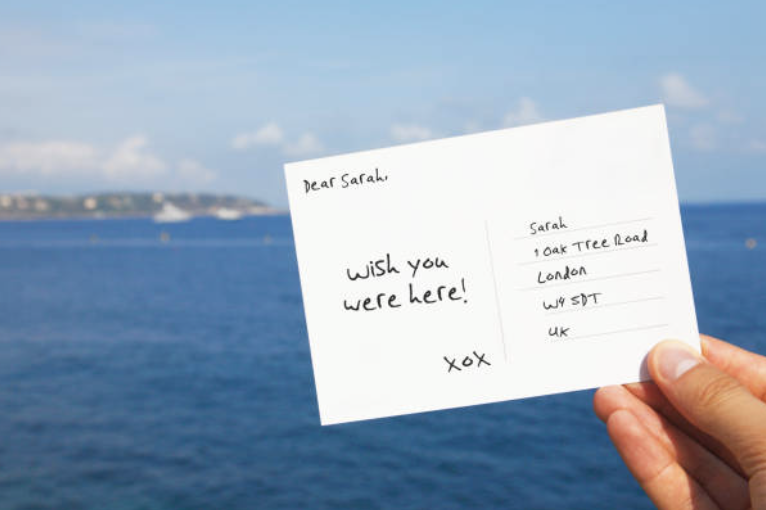 Dear Sarah,
wish you
were here!
xox
Sarah
1 Oak Tree Road
London
W4 5DT
UK